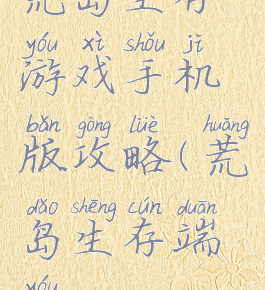 荒岛生存
yóu xì shǒu jī
游戏手机
bǎn gōng lüè huāng
版攻略(荒
dǎo shēng cún duān
岛生存端
yóu